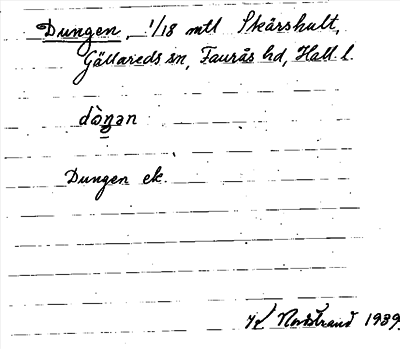 Dungen, 1/18 mtl Skårshult,
Gällareds sn, Faurås hd, Hall l.
dòŋən
Dungen ek.
Nordstrand 1939.